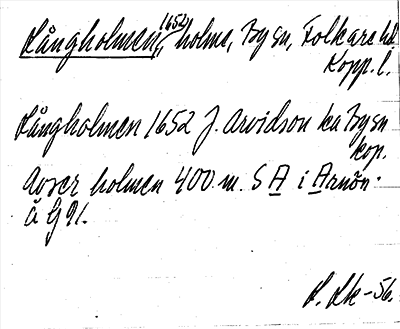 Långholmen, 1652 holme, By sn, Folkare hd.
Kopp. l.
Långholmen 1652 J. Arvidson ka By sn
kop.
Avser holmen 400 m. S A i Arnön.
Å G 91.
L. Lk -56.